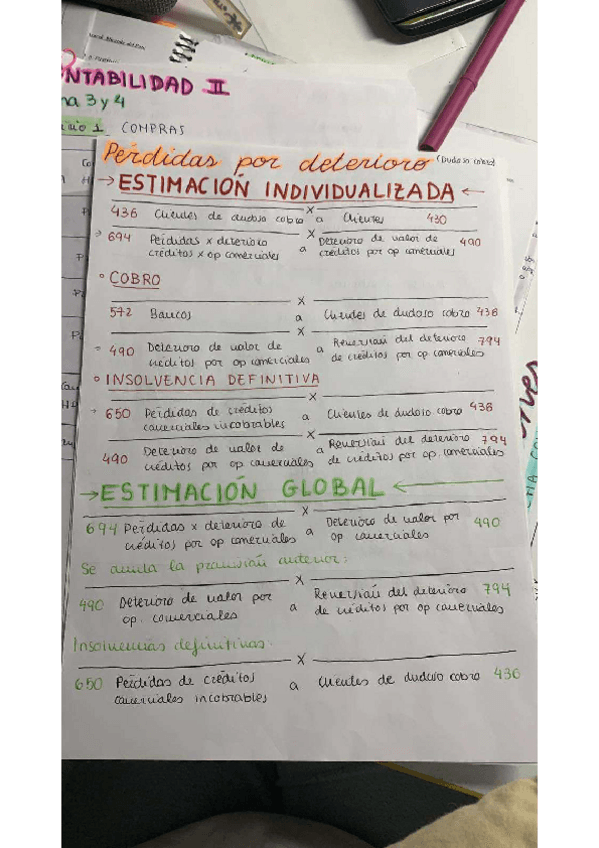 CONTABILIDAD II
3 y 4
1 COMPRAS
Pérdidas por deterioro (Dudoso cobro)
→ ESTIMACIÓN INDIVIDUALIZADA ←
x
436 Clientes de dudoso cobro a Clientes 430
x
694 Pérdidas x deterioro a Deterioro de valor de 490
créditos x op comerciales créditos por op comerciales
° COBRO
x
572 Bancos a Clientes de dudoso cobro 436
x
490 Deterioro de valor de a Reversión del deterioro 794
créditos por op comerciales de créditos por op comerciales
° INSOLVENCIA DEFINITIVA
x
650 Pérdidas de créditos a Clientes de dudoso cobro 436
comerciales incobrables
x
490 Deterioro de valor de a Reversión del deterioro 794
créditos por op comerciales de créditos por op. comerciales
→ ESTIMACIÓN GLOBAL ←
x
694 Pérdidas x deterioro de a Deterioro de valor por 490
créditos por op comerciales op comerciales
Se anula la provisión anterior:
x
490 Deterioro de valor por a Reversión del deterioro 794
op. comerciales de créditos por op comerciales
Insolvencias definitivas:
x
650 Pérdidas de créditos a Clientes de dudoso cobro 430
comerciales incobrables